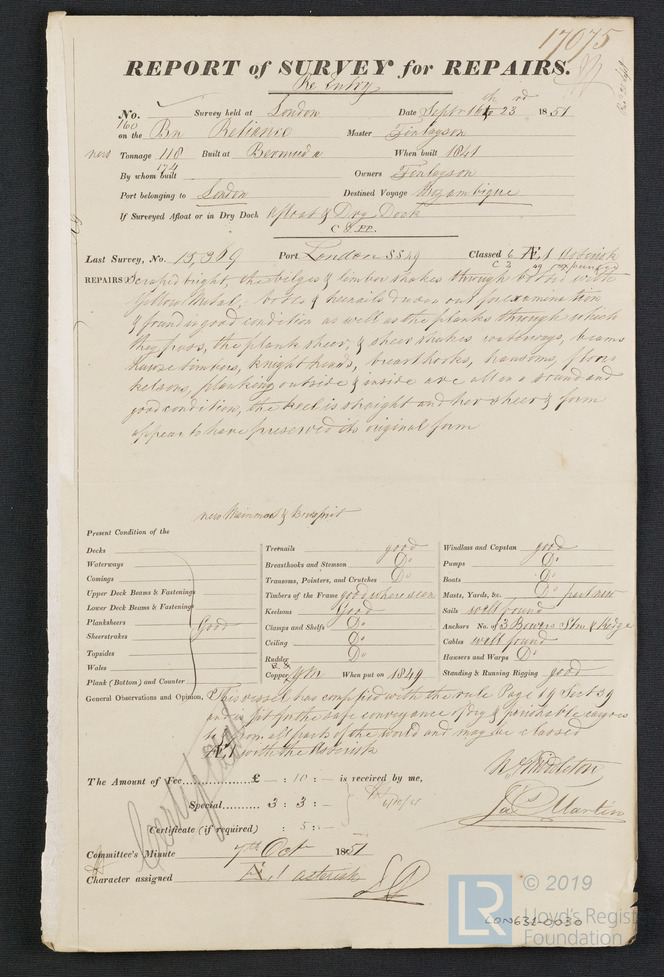 17075
REPORT of SURVEY for REPAIRS.
Re Entry
No. Survey held at London Date Septr 16th 23rd 1851
160
on the Bn Reliance Master Finlayson
new Tonnage 118 Built at Bermuda When built 1841
174
By whom built Owners Finlayson
Port belonging to London Destined Voyage Mozambique
If Surveyed Afloat or in Dry Dock Afloat & Dry Dock
C & PP.
Last Survey, No. 15,369 Port London SS49 Classed 6 Æ 1 Asterisk
REPAIRS Scraped bright, the bilges & limber strakes through bolted with
Yellow Metal, bolts & treenails driven out for examination
& found in good condition as well as the planks through which
they pass, the plank sheer, & sheer strakes waterways, beams
hawse timbers, knightheads, breasthooks, transoms, floors
kelsons, planking outside & inside are all in a sound and
good condition, the keel is straight and her sheer & form
appear to have preserved its original form
new Mainmast & Bowsprit
Present Condition of the
Decks
Waterways
Comings
Upper Deck Beams & Fastenings
Lower Deck Beams & Fastenings
Planksheers Good
Sheerstrakes
Topsides
Wales
Plank (Bottom) and Counter
Treenails good
Breasthooks and Stemson Do
Transoms, Pointers, and Crutches Do
Timbers of the Frame good where seen
Keelsons Good
Clamps and Shelfs Do
Ceiling Do
Rudder Do
Copper YM When put on 1849
Windlass and Capstan good
Pumps Do
Boats Do
Masts, Yards, &c. Do part new
Sails well found
Anchors No. of 3 Bowers Stm & Kedge
Cables well found
Hawsers and Warps Do
Standing & Running Rigging good
General Observations and Opinion, This vessel has complied with the rule Page 19 Sect 39
and is fit for the safe conveyance of dry & perishable cargoes
to & from all parts of the world and may be classed
Æ 1 with the Asterisk
The Amount of Fee £ - : 10 : - is received by me,
N Middleton
Special 3 : 3 : -
Jas Martin
Certificate (if required) : 5 : -
Committee's Minute 7th Oct 1851
Character assigned Æ 1 asterisk
LR
© 2019
Lloyd's Register
Foundation
LON631-0030